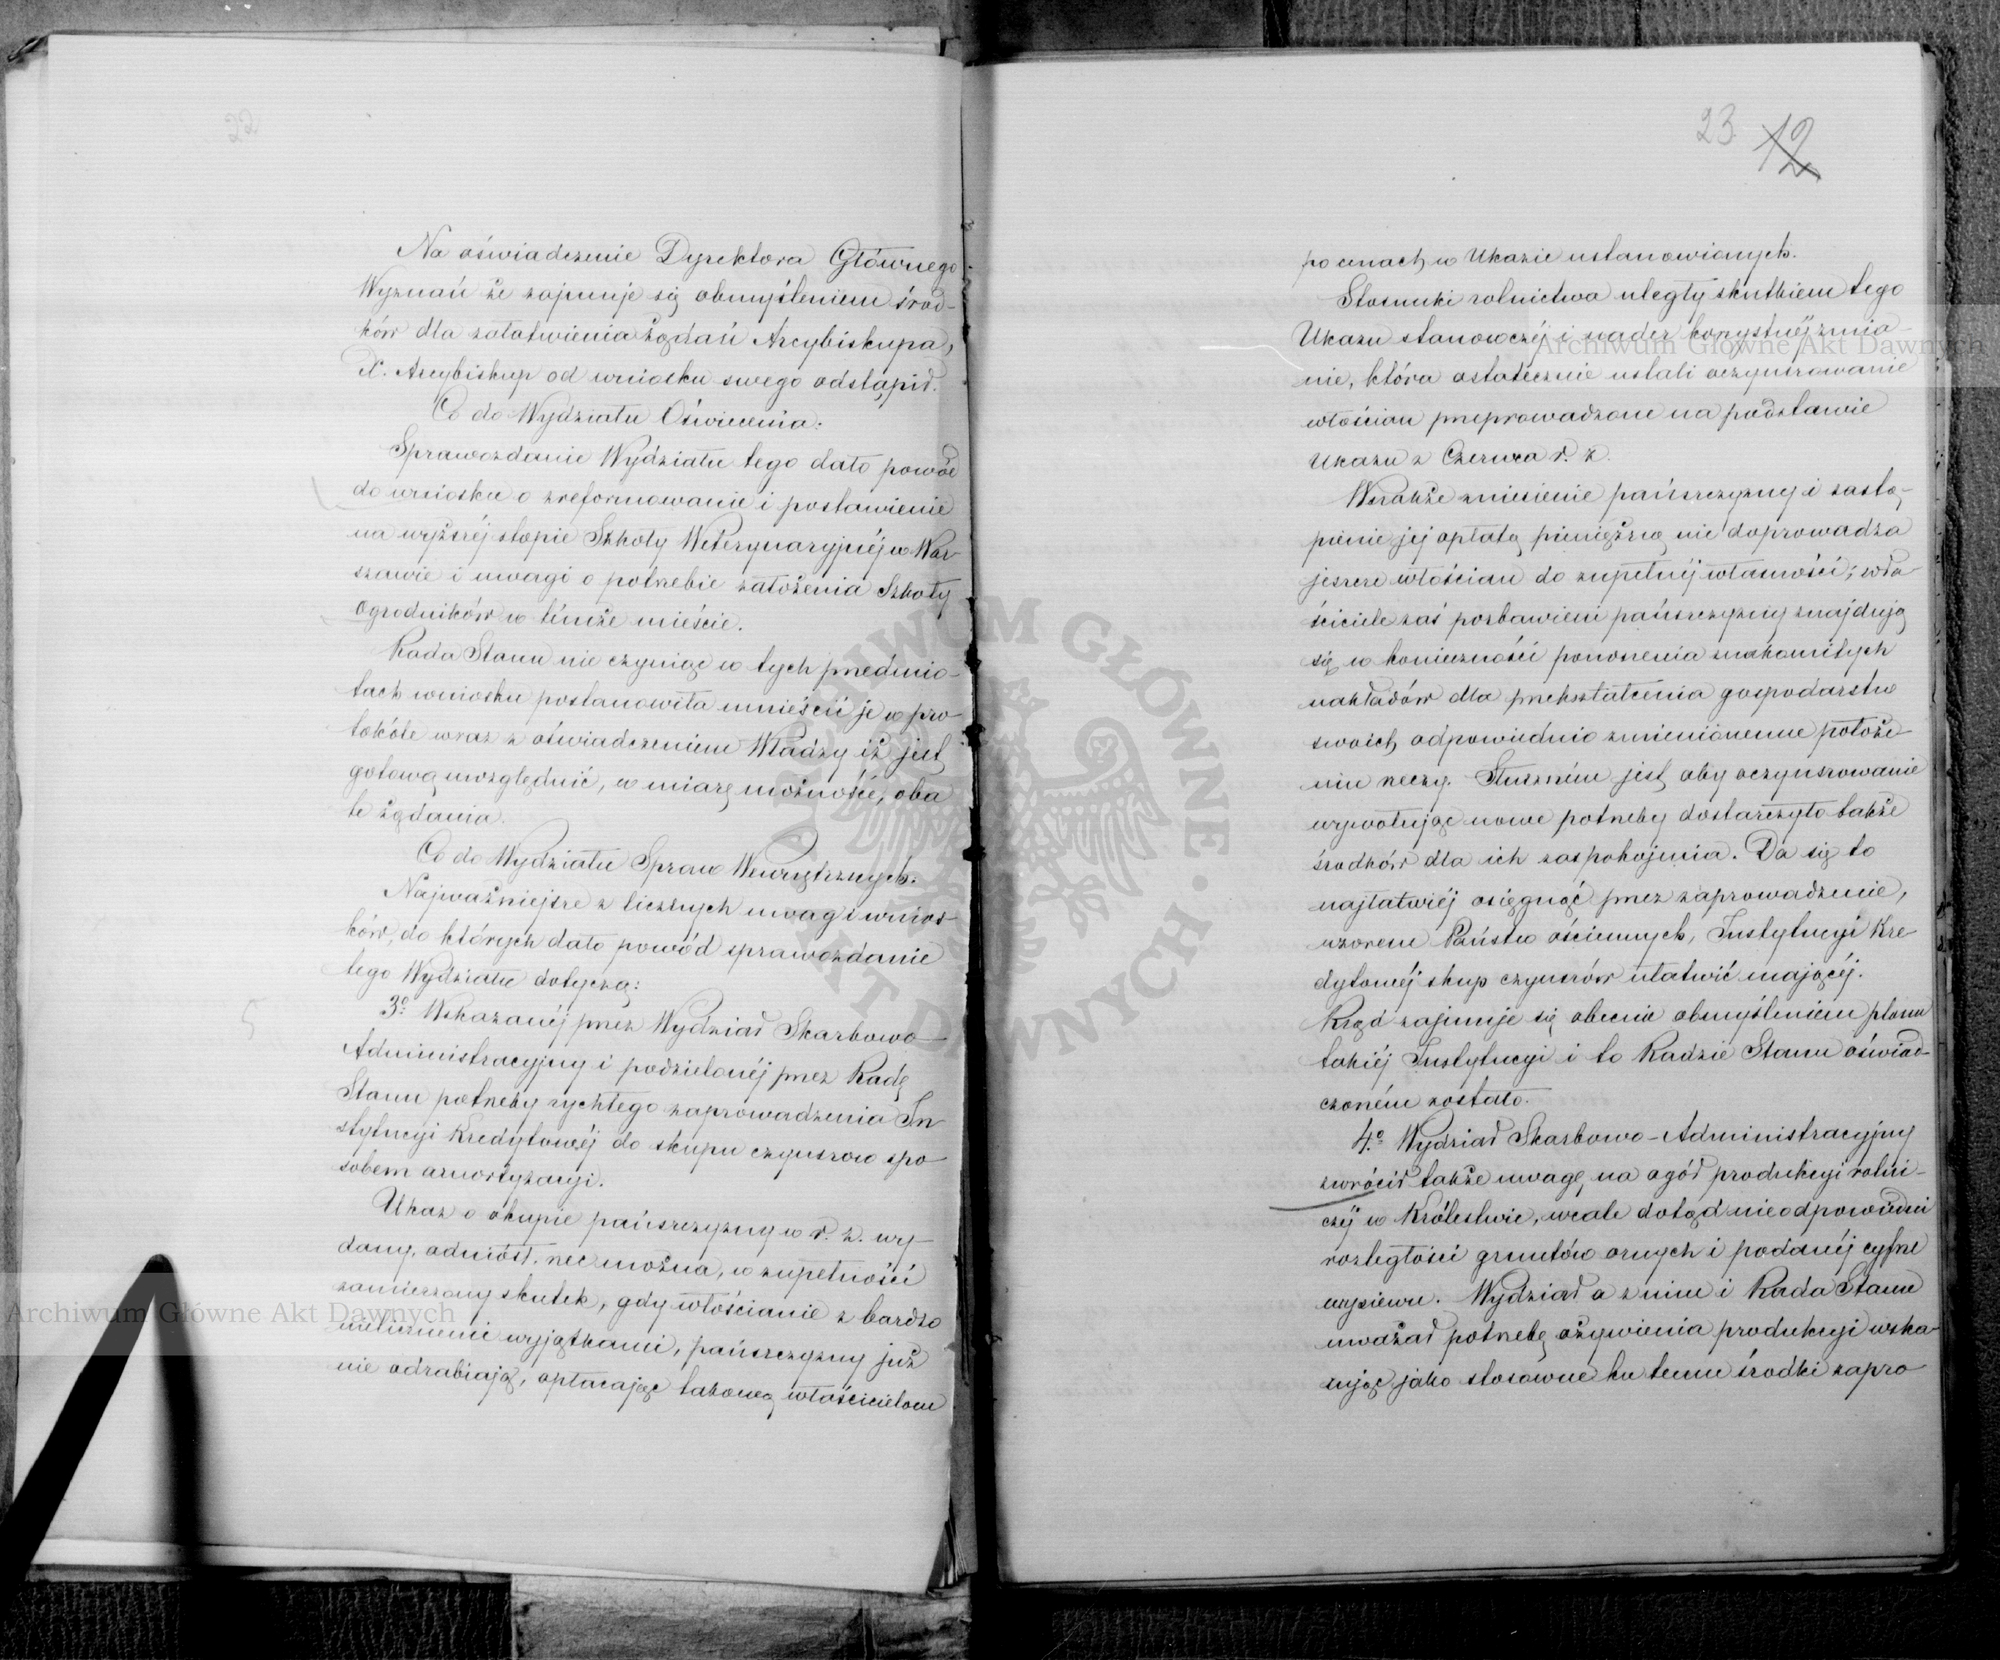 22
Na oświadczenie Dyrektora Głównego
Wyznań że zajmuje się obmyśleniem środ-
ków dla załatwienia żądań Arcybiskupa,
X. Arcybiskup od wniosku swego odstąpił.
Co do Wydziału Oświecenia:
Sprawozdanie Wydziału tego dało powód
do wniosku o zreformowanie i postawienie
na wyższéj stopie Szkoły Weterynaryjnéj w War-
szawie i uwagi o potrzebie założenia Szkoły
Ogrodników w témże mieście.
Rada Stanu nie czyniąc w tych przedmio-
tach wniosku postanowiła umieścić je w pro-
tokóle wraz z oświadczeniem Władzy iż jest
gotową uwzględnić, w miarę możności, oba
te żądania.
Co do Wydziału Spraw Wewnętrznych.
Najważniejsze z licznych uwag i wnios-
ków, do których dało powód sprawozdanie
tego Wydziału dotyczą:
5
3o Wskazanéj przez Wydział Skarbowo-
Administracyjny i podzielonéj przez Radę
Stanu potrzeby rychłego zaprowadzenia In
stytucyi Kredytowéj do skupu czynszow spo
sobem amortyzacyi.
Ukaz o okupie pańszczyzny w r. z. wy-
dany, odniósł, rzec można, w zupełności
zamierzony skutek, gdy włościanie z bardzo
nielicznemi wyjątkami, pańszczyzny już
nie odrabiają, opłacając takową właścicielom
23 12
po cenach w Ukazie ustanowionych.
Stosunki rolnictwa uległy skutkiem tego
Ukazu stanowczéj i nader korzystnéj zmia-
nie, która ostatecznie ustali oczynszowanie
włościan przeprowadzone na podstawie
Ukazu z Czerwca r. z.
Wszakże zniesienie pańszczyzny i zastą-
pienie jéj opłatą pieniężną nie doprowadza
jeszcze włościan do zupełnéj własności; wła-
ściciele zaś pozbawieni pańszczyzny znajdują
się w konieczności ponoszenia znakomitych
nakładów dla przekształcenia gospodarstw
swoich, odpowiednio zmienionemu położe-
niu rzeczy. Słusznem jest, aby oczynszowanie
wywołując nowe potrzeby dostarczyło także
środków dla ich zaspokojenia. Da się to
najłatwiéj osięgnąć przez zaprowadzenie,
wzorem Państw ościennych, Instytucyi Kre
dytowéj skup czynszów ułatwić mającéj.
Rząd zajmuje się obecnie obmyśleniem planu
takiéj Instytucyi i to Radzie Stanu oświad-
czoném zostało.
4o Wydział Skarbowo-Administracyjny
zwrócił także uwagę na ogół produkcyi rolni-
czéj w Królestwie, wcale dotąd nieodpowiedni
rozległości gruntów ornych i podanéj cyfrze
wysiewu. Wydział a z nim i Rada Stanu
uważał potrzebę ożywienia produkcyi wska-
zując jako stosowne ku temu środki zapro
Archiwum Główne Akt Dawnych
Archiwum Główne Akt Dawnych
ARCHIWUM GŁÓWNE AKT DAWNYCH